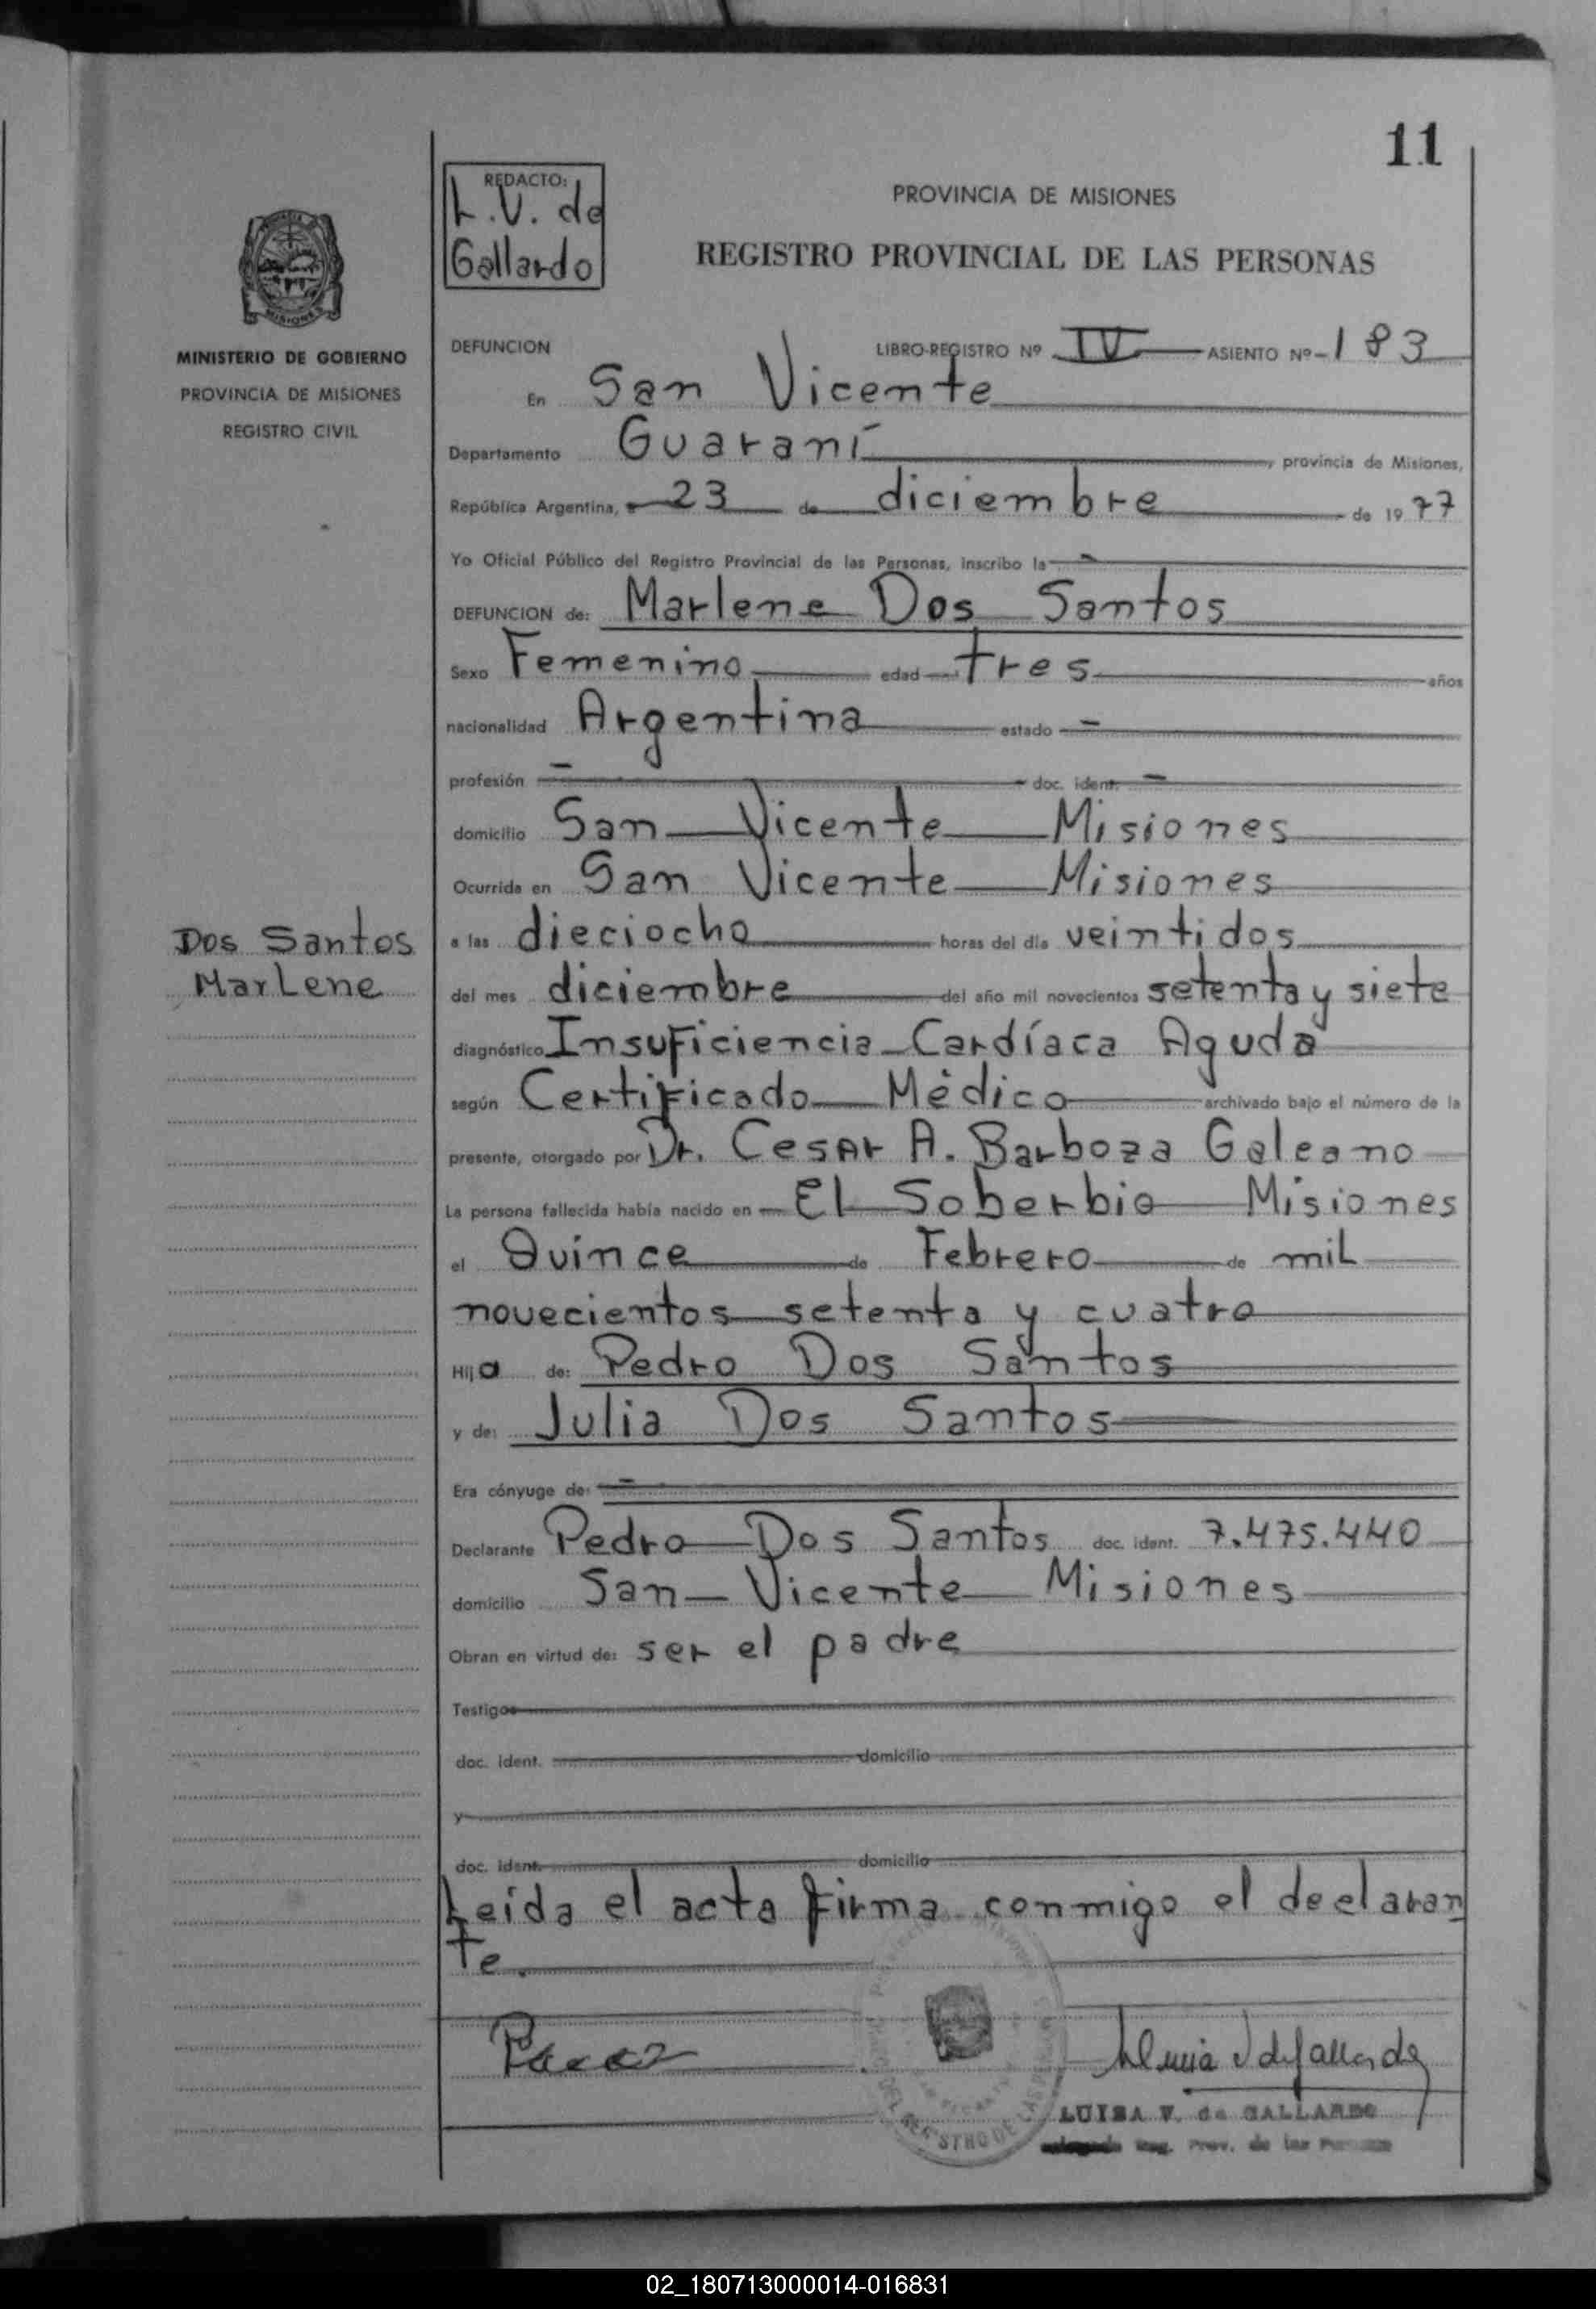 11
REDACTO:
L.V. de
Gallardo
PROVINCIA DE MISIONES
REGISTRO PROVINCIAL DE LAS PERSONAS
MISIONES
MINISTERIO DE GOBIERNO
PROVINCIA DE MISIONES
REGISTRO CIVIL
Dos Santos
Marlene
DEFUNCION LIBRO-REGISTRO Nº IV ASIENTO Nº 183
En San Vicente
Departamento Guaraní, provincia de Misiones,
República Argentina, a 23 de diciembre de 1977
Yo Oficial Público del Registro Provincial de las Personas, inscribo la
DEFUNCION de: Marlene Dos Santos
Sexo Femenino edad tres años
nacionalidad Argentina estado -
profesión - doc. ident. -
domicilio San Vicente Misiones
Ocurrida en San Vicente Misiones
a las dieciocho horas del día veintidos
del mes diciembre del año mil novecientos setenta y siete
diagnóstico Insuficiencia Cardíaca Aguda
según Certificado Médico archivado bajo el número de la
presente, otorgado por Dr. Cesar A. Barboza Galeano
La persona fallecida había nacido en El Soberbio Misiones
el Quince de Febrero de mil
novecientos setenta y cuatro
Hija de: Pedro Dos Santos
y de: Julia Dos Santos
Era cónyuge de: -
Declarante Pedro Dos Santos doc. ident. 7.475.440
domicilio San Vicente Misiones
Obran en virtud de: ser el padre
Testigos
doc. ident. domicilio
y
doc. ident. domicilio
Leída el acta firma conmigo el declaran
te.
LUISA V. de GALLARDO
Reg. Prov. de las
02_180713000014-016831